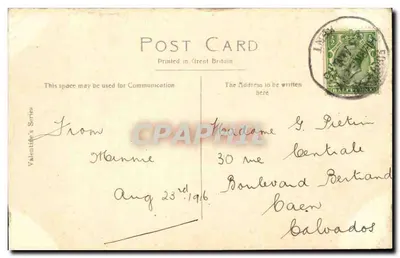 POST CARD
Printed in Great Britain
This space may be used for Communication
The Address to be written
here
Valentine's Series
From
Minnie
Aug 23rd 1916
Madame G. Pietin
30 rue Centrale
Boulevard Bertrand
Caen
Calvados
CPARAMA.COM